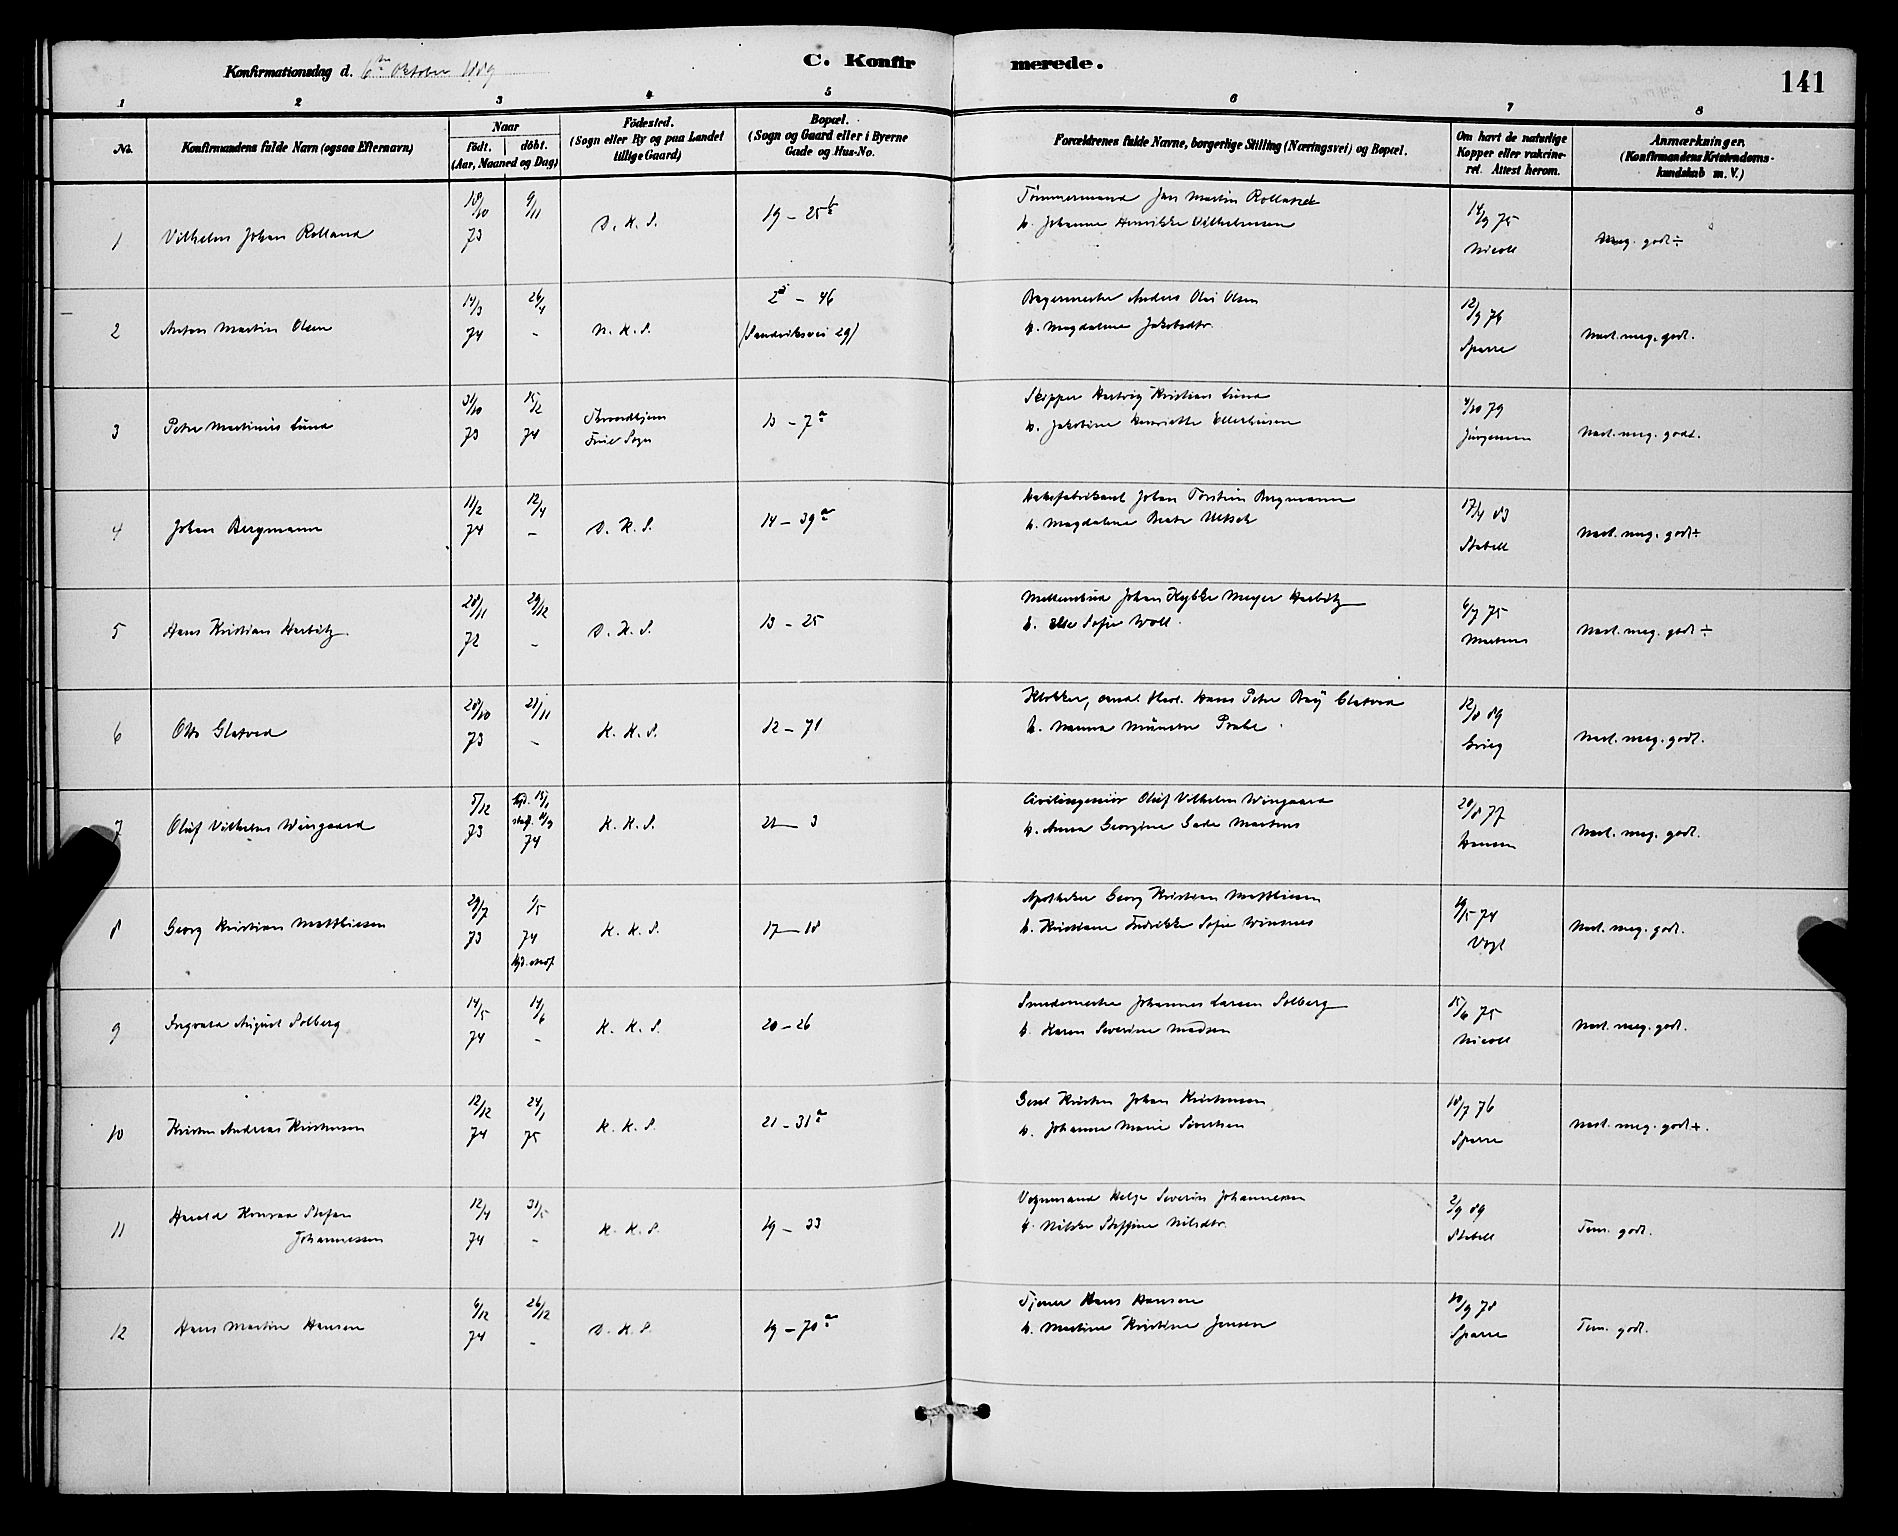 C. Konfirmerede.
141
Konfirmationsdag d. 6te Oktober 1889
1 2 3 4 5 6 7 8
No.
Konfirmandens fulde Navn (ogsaa Efternavn)
Naar
födt. döbt.
(Aar, Maaned og Dag)
Födested.
(Sogn eller By og paa Landet
tillige Gaard)
Bopæl.
(Sogn og Gaard eller i Byerne
Gade og Hus-No.
Forældrenes fulde Navne, borgerlige Stilling (Næringsvei) og Bopæl.
Om havt de naturlige
Kopper eller vakcine-
ret. Attest herom.
Anmærkninger.
(Konfirmandens Kristendoms-
kundskab m. V.)
1 Vilhelm Johan Rolland
18/10 73
9/11
D. K. S.
19 - 25 b
Tømmermand Jan Martin Rolland
h. Johanne Henrikke Vilhelmsen
14/9 75
Nicoll
Meg. godt ÷
2 Anton Martin Olsen
14/3 74
26/4 -
N. K. S.
2 - 46
(Sandviksvei 29)
Bagermester Anders Olai Olsen
h. Magdalene Jakobsdtr.
12/9 76
Sparre
Næst. meg. godt.
3 Peter Martinius Lund
31/10 73
15/2 74
Throndhjem
Frue Sogn
13 - 7 a
Skipper Hartvig Kristian Lund
h. Jakobine Henriette Ellerhusen
4/10 79
Jürgensen
Næst. meg. godt.
4 Johan Bergmann
11/2 74
12/4 -
D. K. S.
14 - 39 a
Johan Torstein Bergmann
h. Magdalene Beate
17/4 83
Stabell
Næst. meg. godt ÷
5 Hans Kristian Herbitz
28/11 72
29/12 -
D. K. S.
13 - 25
Johan Meyer Herbitz
h. Elle Sofie Woll.
6/7 75
Martens
Næst. meg. godt ÷
6 Otto Glatved
28/10 73
21/11 -
K. K. S.
12 - 71
Klokker, cand. theol. Hans Peter Glatved
h. Nanna Münster
12/8 89
Grieg
Næst. meg. godt.
7 Oluf Vilhelm Wingaard
5/12 73
74
K. K. S.
21 - 3
Civilingeniør Oluf Vilhelm Wingaard
h. Anna Georgine Gade Martens
20/8 77
Hansen
Næst. meg. godt.
8 Georg Kristian Matthiesen
29/7 73
74
K. K. S.
17 - 18
Apotheker Georg Kristian Matthiesen
h. Kristiane Fredrikke Sofie Winsnes
74
Vogt
Næst. meg. godt.
9 Ingvard August Solberg
14/5 74
14/6 -
K. K. S.
20 - 26
Smedemester Johannes Larsen Solberg
h. Karen Severine Madsen
15/6 75
Nicoll
Næst. meg. godt.
10 Kristen Andreas Kristensen
12/12 74
24/1 75
K. K. S.
21 - 31 a
Kristen Johan Kristensen
h. Johanne Marie Sivertsen
18/7 76
Sparre
Næst. meg. godt +.
11 Harald Konrad Stefan
Johannessen
12/4 74
31/5 -
K. K. S.
19 - 33
Vognmand Helge Severin Johannessen
h. Nilske Steffine Nilsdtr.
2/9 89
Stabell
Tem. godt.
12 Hans Martin Hansen
6/12 74
26/12 -
D. K. S.
19 - 70 a
Tjener Hans Hansen
h. Martine Kristine Jensen
10/9 78
Sparre
Tem. godt.